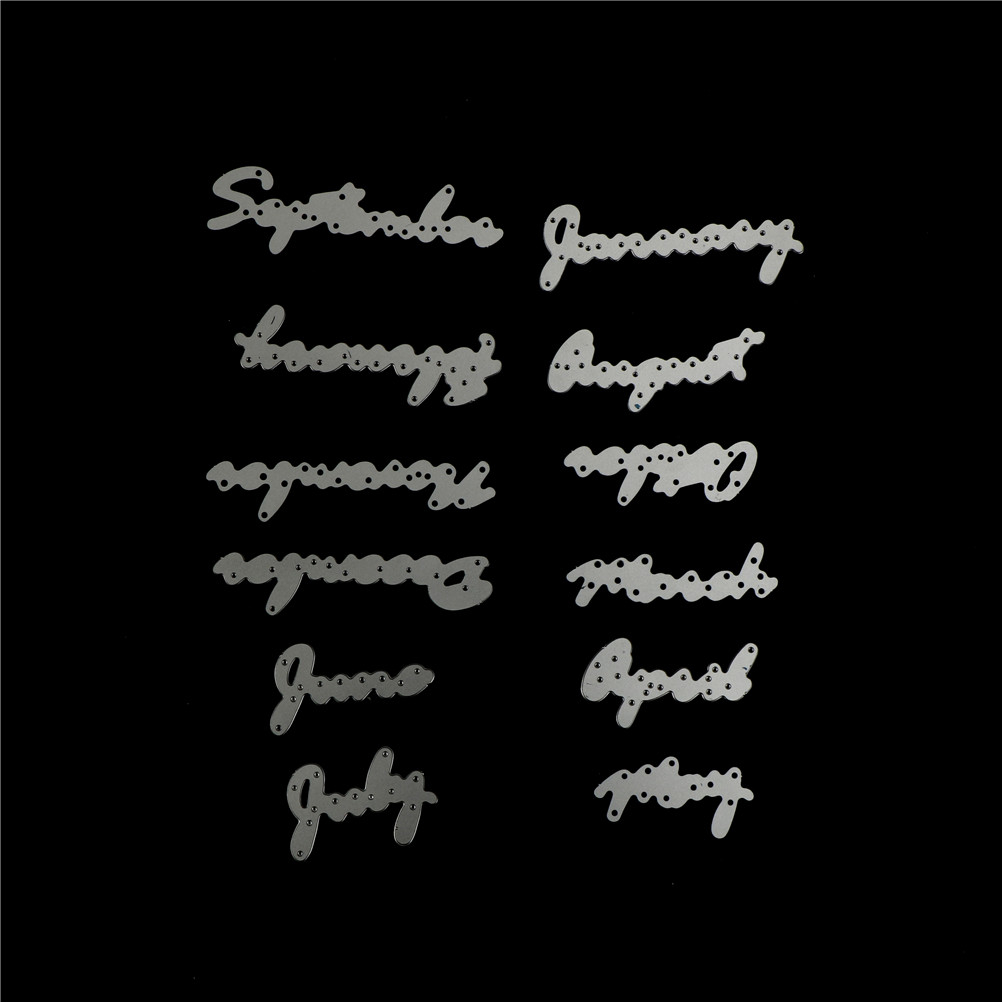 September
January
February
August
November
October
December
March
June
April
July
May